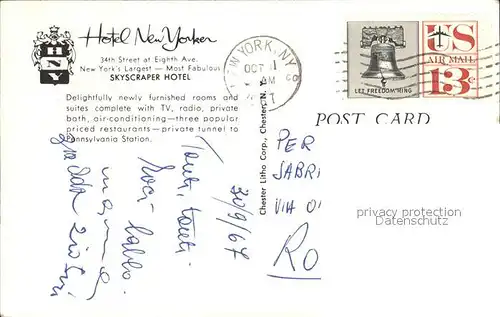 Hotel New Yorker
34th Street at Eighth Ave.
New York's Largest — Most Fabulous
SKYSCRAPER HOTEL
HNY
Delightfully newly furnished rooms and
suites complete with TV, radio, private
bath, air-conditioning—three popular
priced restaurants—private tunnel to
Pennsylvania Station.
NEW YORK, N.Y.
OCT 1
PM
LET FREEDOM RING
US
AIR MAIL
13c
POST CARD
Chester Litho Corp., Chester, N.Y.
30/9/67
Tanti, tanti
baci
PER
SABRI
VIA
RO
privacy protection
Datenschutz